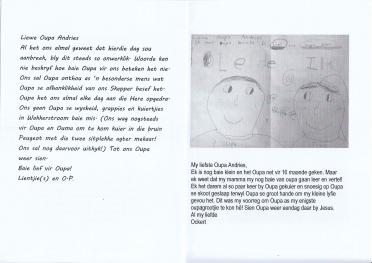 Liewe Oupa Andries
Al het ons almal geweet dat hierdie dag sou
aanbreek, bly dit steeds so onwerklik. Woorde kan
nie beskryf hoe baie Oupa vir ons beteken het nie.
Ons sal Oupa onthou as 'n besonderse mens wat
Oupa se afhanklikheid van ons Skepper besef het.
Oupa het ons almal elke dag aan die Here opgedra.
Ons gaan Oupa se wysheid, grappies en kuiertjies
in Wakkerstroom baie mis. (Ons wag nogsteeds
vir Oupa en Ouma om te kom kuier in die bruin
Peugeot met die twee sitplekke agter mekaar!
Ons sal nog daarvoor uitkyk!) Tot ons Oupa
weer sien.
Baie lief vir Oupa!
Lientjie(s) en O.P.
My liefste Oupa Andries,
Ek is nog baie klein en het Oupa net vir 16 maande geken. Maar
ek weet dat my mamma my nog baie van oupa gaan leer en vertel!
Ek het darem al so paar keer by Oupa gekuier en snoesig op Oupa
se skoot geslaap terwyl Oupa se groot hande om my kleine lyfie
gevou het. Dit was my voorreg om Oupa as my enigste
oupagrootjie te kon hê! Sien Oupa weer eendag daar by Jesus.
Al my liefde
Ockert